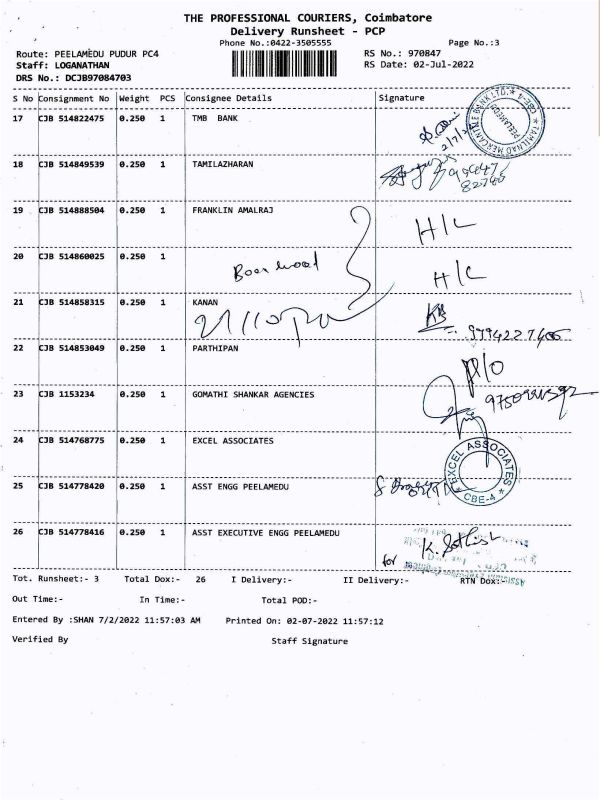 THE PROFESSIONAL COURIERS, Coimbatore
Delivery Runsheet - PCP
Phone No.:0422-3505555 Page No.:3
Route: PEELAMEDU PUDUR PC4 RS No.: 970847
Staff: LOGANATHAN RS Date: 02-Jul-2022
DRS No.: DCJB97084703
S No Consignment No Weight PCS Consignee Details Signature
17 CJB 514822475 0.250 1 TMB BANK
TAMILNAD MERCANTILE BANK LTD. CBE-4 PEELAMEDU
18 CJB 514849539 0.250 1 TAMILAZHARAN
19 CJB 514888504 0.250 1 FRANKLIN AMALRAJ
H/L
20 CJB 514860025 0.250 1
H/L
21 CJB 514858315 0.250 1 KANAN
KB
22 CJB 514853049 0.250 1 PARTHIPAN
23 CJB 1153234 0.250 1 GOMATHI SHANKAR AGENCIES
24 CJB 514768775 0.250 1 EXCEL ASSOCIATES
EXCEL ASSOCIATES CBE-4
25 CJB 514778420 0.250 1 ASST ENGG PEELAMEDU
26 CJB 514778416 0.250 1 ASST EXECUTIVE ENGG PEELAMEDU
for K. Sathish
Tot. Runsheet:- 3 Total Dox:- 26 I Delivery:- II Delivery:- RTN Dox:-
Out Time:- In Time:- Total POD:-
Entered By :SHAN 7/2/2022 11:57:03 AM Printed On: 02-07-2022 11:57:12
Verified By Staff Signature